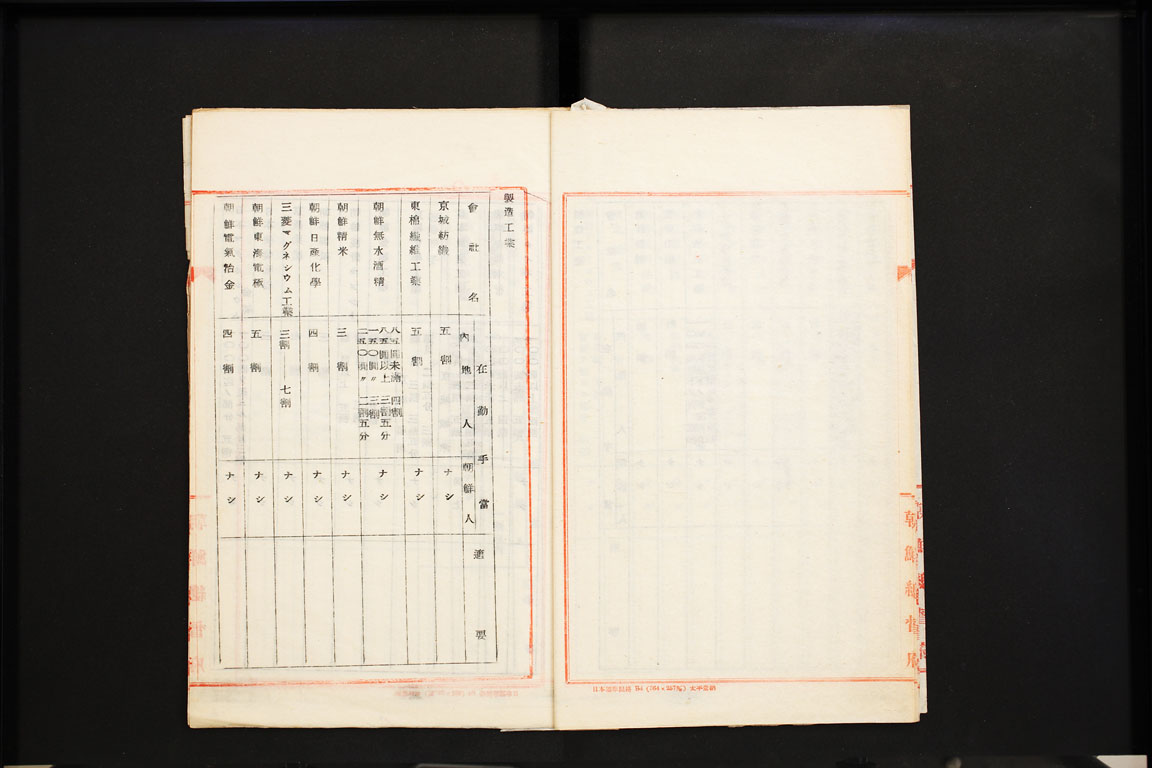 製造工業
會社名
在勤手當
內地人
朝鮮人
適要
京城紡織
五割
ナシ
東棉纖維工業
五割
ナシ
朝鮮無水酒精
八五圓未滿 四割
八五圓以上 三割五分
一五〇圓〃 三割
二五〇圓〃 二割五分
ナシ
朝鮮精米
三割
ナシ
朝鮮日產化學
四割
ナシ
三菱マグネシウム工業
三割——七割
ナシ
朝鮮東海電極
五割
ナシ
朝鮮電氣冶金
四割
ナシ
朝鮮總督府